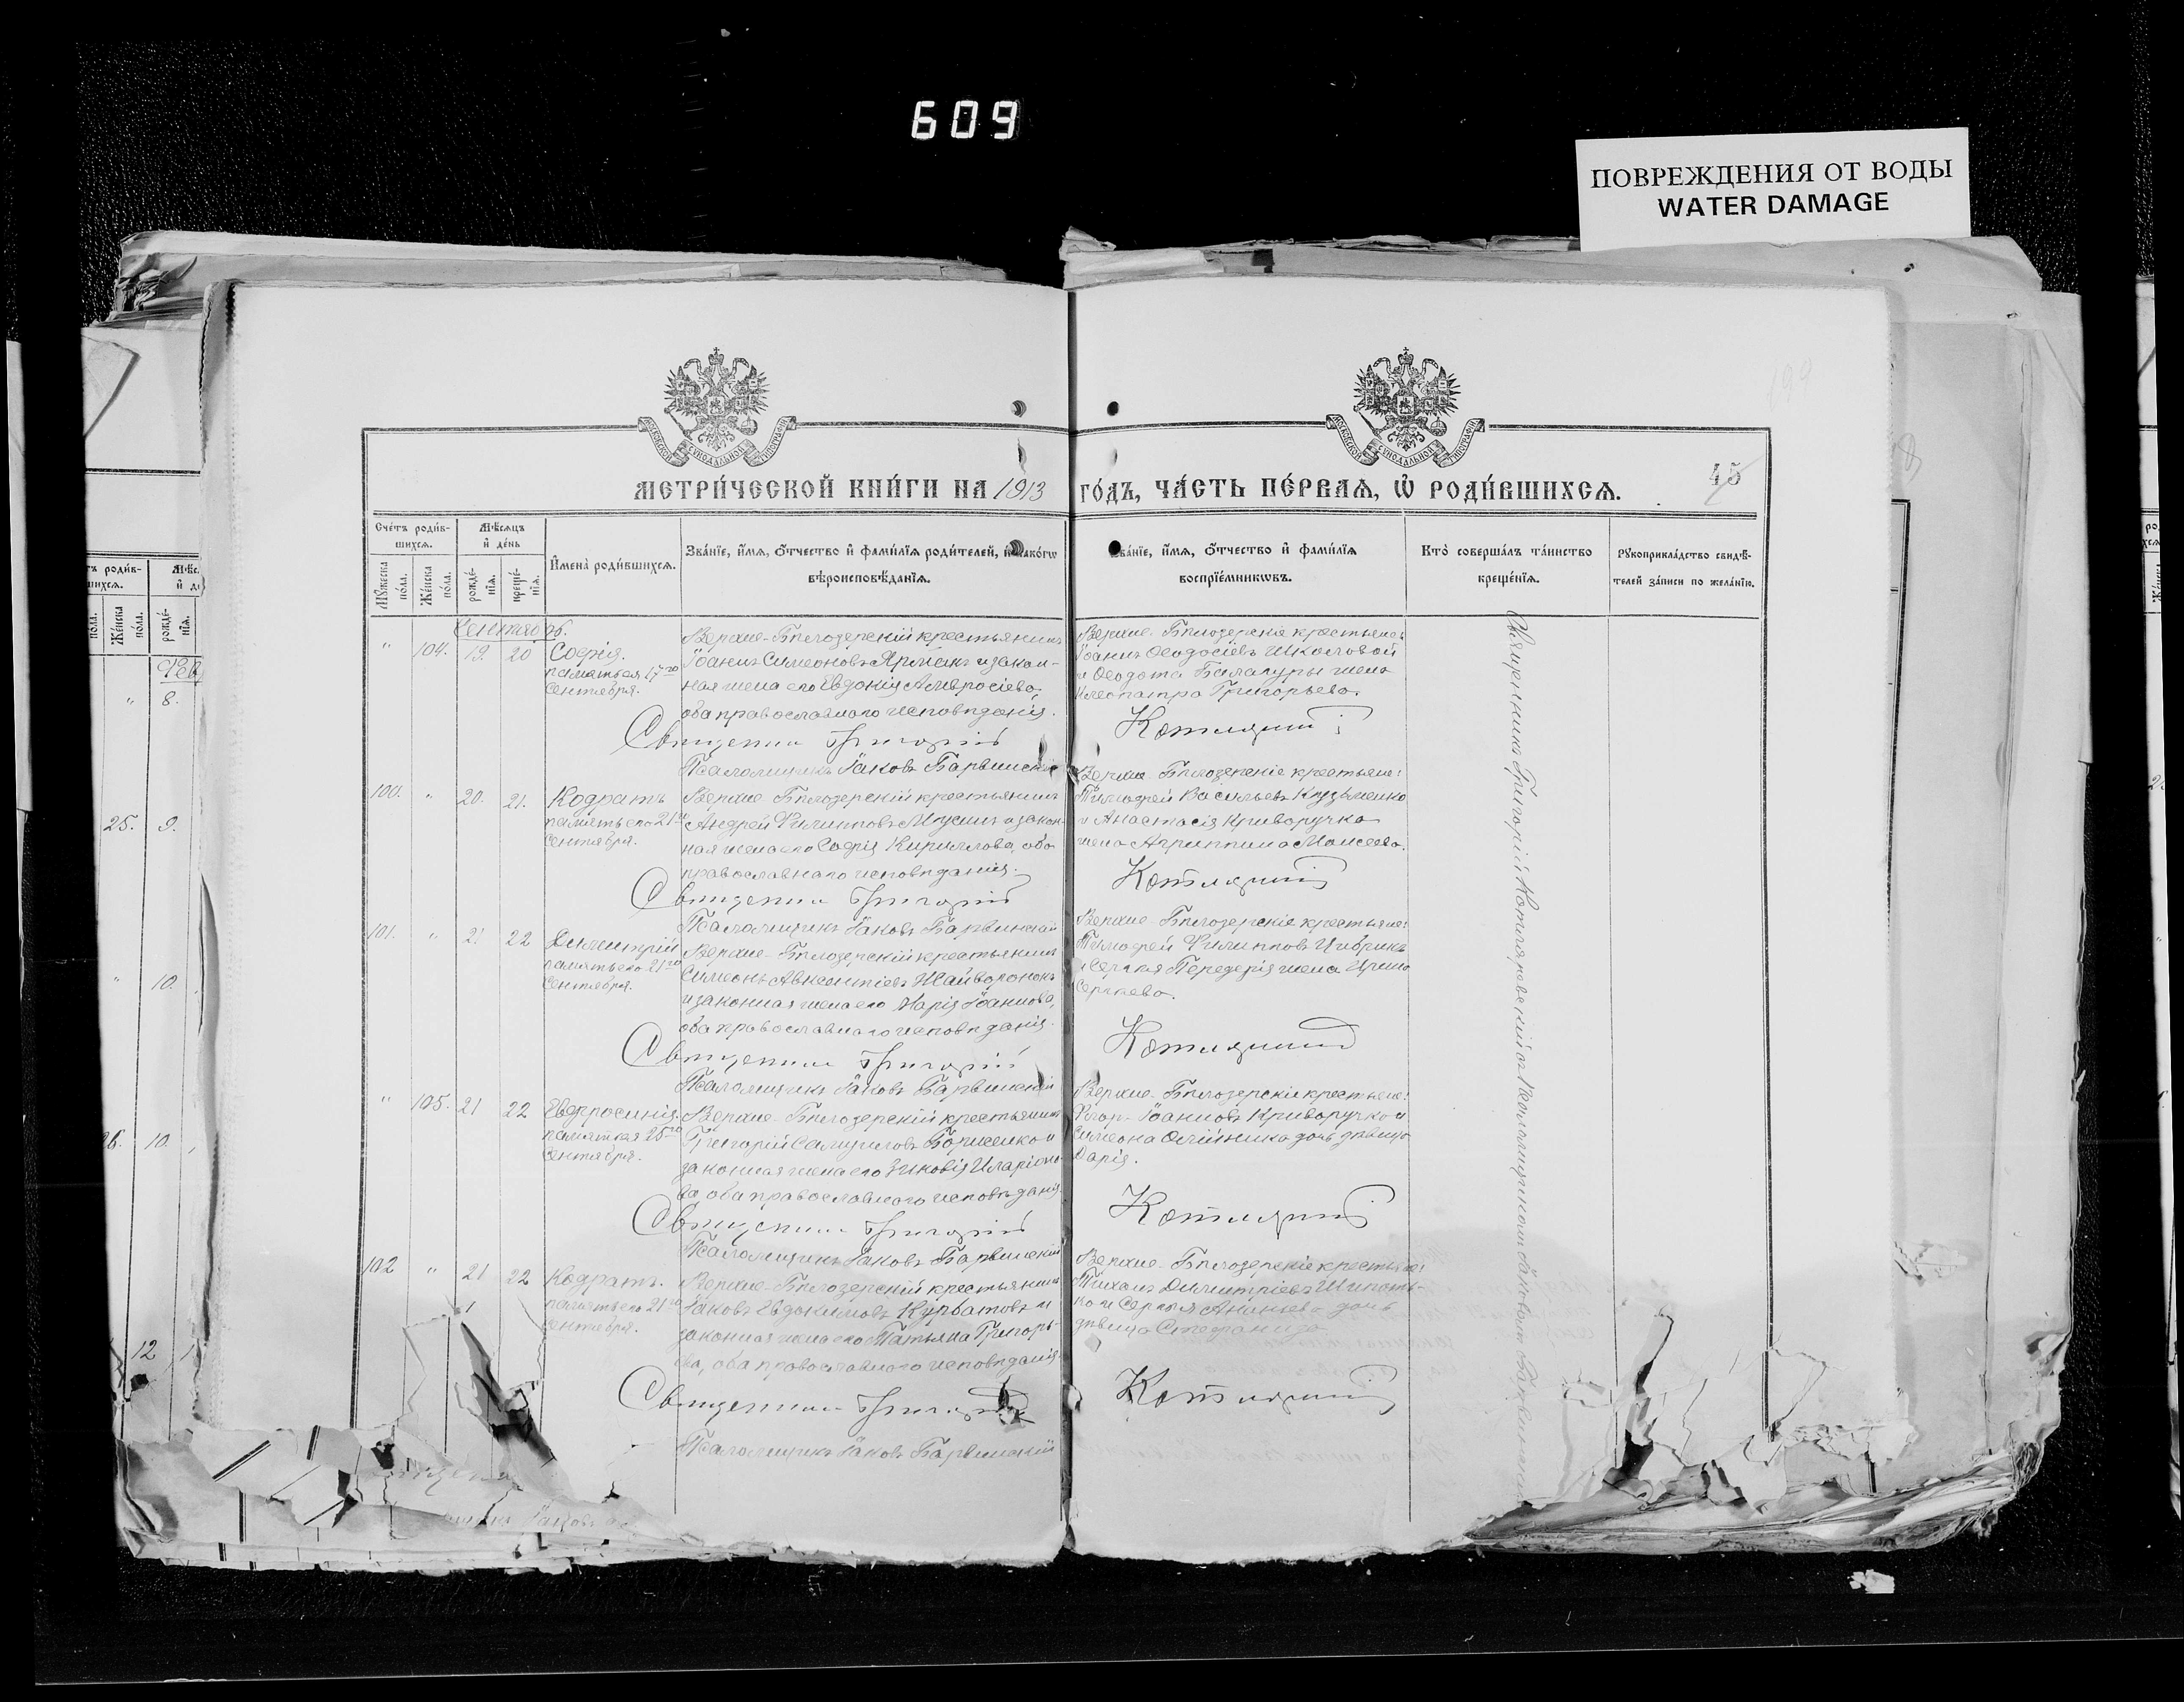 609
ПОВРЕЖДЕНИЯ ОТ ВОДЫ
WATER DAMAGE
МОСКОВСКОЙ СѴНОДАЛЬНОЙ ТИПОГРАФІИ
МОСКОВСКОЙ СѴНОДАЛЬНОЙ ТИПОГРАФІИ
МЕТРИ́ЧЕСКОЙ КНИ́ГИ НА 1913 ГО́ДЪ, ЧА́СТЬ ПЕ́РВАЯ, Ѡ҆ РОДИ́ВШИХСЯ.
45
Сче́тъ роди́в-
шихся.
Мѣ́сяцъ
и҆ де́нь
Мꙋ́жеска по́ла.
Же́нска по́ла.
рожде́-нїя.
креще́-нїя.
И҆мена̀ роди́вшихся.
Зва́нїе, и҆́мя, ѻ҆́тчество и҆ фами́лїя роди́телей, и҆ како́гѡ
вѣроисповѣ́данїя.
Зва́нїе, и҆́мя, ѻ҆́тчество и҆ фами́лїя
воспрїе́мникѡвъ.
Кто̀ соверша́лъ та́инство
креще́нїя.
Рꙋкоприкла́дство свидѣ́-
телей за́писи по жела́нїю.
Сентябрь.
" 104. 19. 20 Софія.
память ея 17го
Сентября.
Верхне-Бѣлозерскій крестьянинъ
Іоаннъ Симеоновъ и закон-
ная жена его Евдокія Амвросіева,
оба православнаго исповѣданія.
Священник Григорій
Псаломщикъ Іаковъ Барвинскій
Верхне-Бѣлозерскіе крестьяне:
Іоаннъ Ѳеодосіевъ Школовой
и Ѳеодота Балацуры жена
Клеопатра Григорьева.
100. " 20. 21. Кодратъ
память его 21го
Сентября.
Верхне-Бѣлозерскій крестьянинъ
Андрей Филипповъ и закон-
ная жена его Софія Кириллова, оба
православнаго исповѣданія.
Священник Григорій
Псаломщикъ Іаковъ Барвинскій
Верхне-Бѣлозерскіе крестьяне:
Тимофей Васильевъ Кузьменко
и Анастасія Криворучка
жена Агриппина Моисеева.
101. " 21 22 Димитрій
память его 21го
Сентября.
Верхне-Бѣлозерскій крестьянинъ
Симеонъ Авксентіевъ Жайворонокъ
и законная жена его Марія Іоаннова,
оба православнаго исповѣданія.
Священник Григорій
Псаломщикъ Іаковъ Барвинскій
Верхне-Бѣлозерскіе крестьяне:
Тимофей Филипповъ Цибрикъ
и Сергѣя Передерія жена Ирина
Сергѣева.
" 105. 21 22 Евфросинія.
память ея 25го
Сентября.
Верхне-Бѣлозерскій крестьянинъ
Григорій Самуиловъ Борисенко и
законная жена его Зиновія Иларіоно-
ва, оба православнаго исповѣданія.
Священник Григорій
Псаломщикъ Іаковъ Барвинскій
Верхне-Бѣлозерскіе крестьяне:
Іоанновъ Криворучко и
Симеона Олійника дочь дѣвица
Дарія.
102 " 21 22 Кодратъ.
память его 21го
Сентября.
Верхне-Бѣлозерскій крестьянинъ
Іаковъ Евдокимовъ Курбатовъ и
законная жена его Татьяна Григорь-
ева, оба православнаго исповѣданія.
Священник Григорій
Псаломщикъ Іаковъ Барвинскій
Верхне-Бѣлозерскіе крестьяне:
Тихонъ Димитріевъ
и Сергѣя Ананьева дочь
дѣвица Стефанида
Священникъ Григорій Котляревскій съ Псаломщикомъ Іаковомъ Барвинскимъ